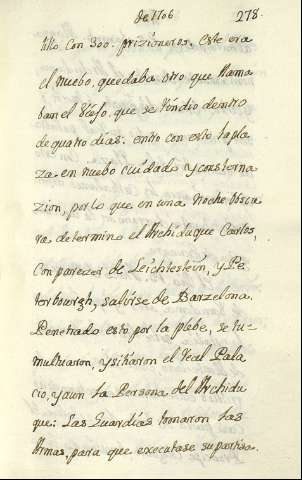 de 1706 278.
tillo con 300. prizioneros. Este era
el nuebo, quedaba otro que llama
ban el Viejo, que se rindio dentro
de quatro dias: entro con esto la pla
za en nuebo cuidado y consterna
zion, por lo que en una noche obscu
ra determino el Archiduque Carlos,
con parecer de Leichtestein, y Pe
terbourgh, salirse de Barzelona.
Penetrado esto por la plebe, se tu=
multuaron, y sitiaron el Real Pala
cio, y aun la Persona del Archidu
que: Las Guardias tomaron las
Armas, para que executase su partida.